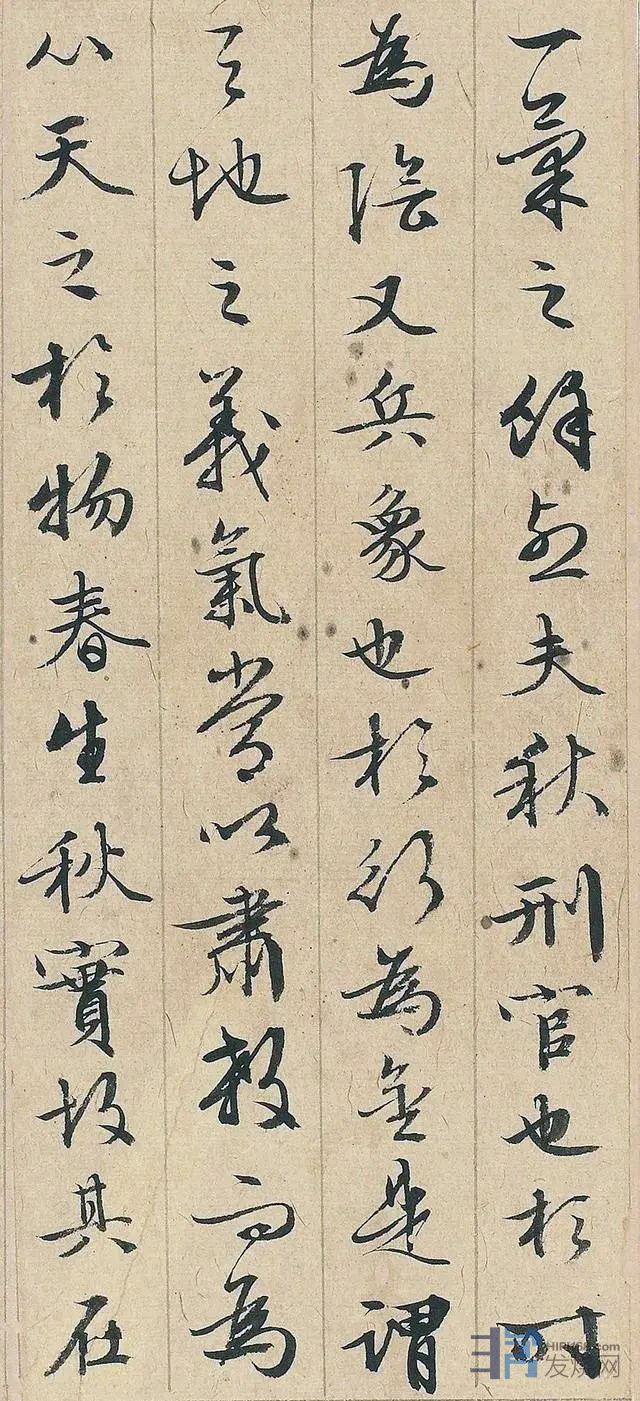 一氣之餘烈夫秋刑官也於時
為陰又兵象也於行為金是謂
天地之義氣常以肅殺而為
心天之於物春生秋實故其在
发烧网